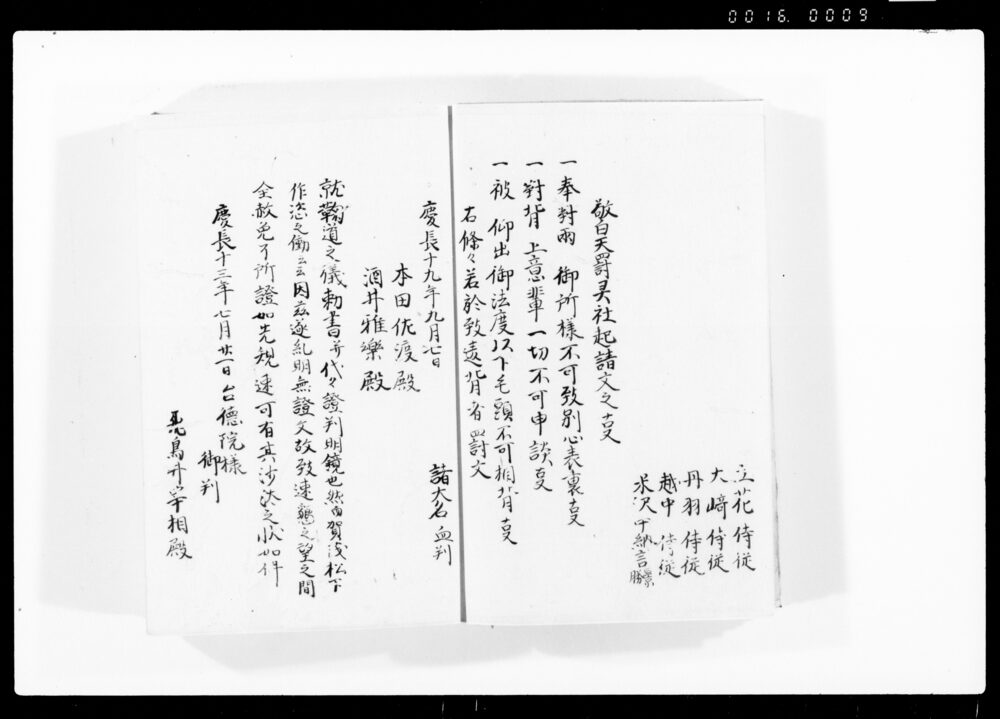 0016. 0009
立花侍従
大崎侍従
丹羽侍従
越中侍従
米沢中納言景勝
敬白天罰灵社起請文之事
一奉對両 御所様不可致別心表裏事
一對背 上意輩一切不可申談事
一被 仰出御法度以下毛頭不可相背事
右條々若於致違背者 罰文
慶長十九年九月七日 諸大名血判
本田佐渡殿
酒井雅樂殿
就鞠道之儀勅書并代々證判明鏡也然由賀茂松下
作恣之働云々因茲遂糺明無證文故致連懇之望之間
全赦免了所證如先規速可有其沙汰之状如件
慶長十三年七月廿一日 台徳院様
御判
飛鳥井宰相殿